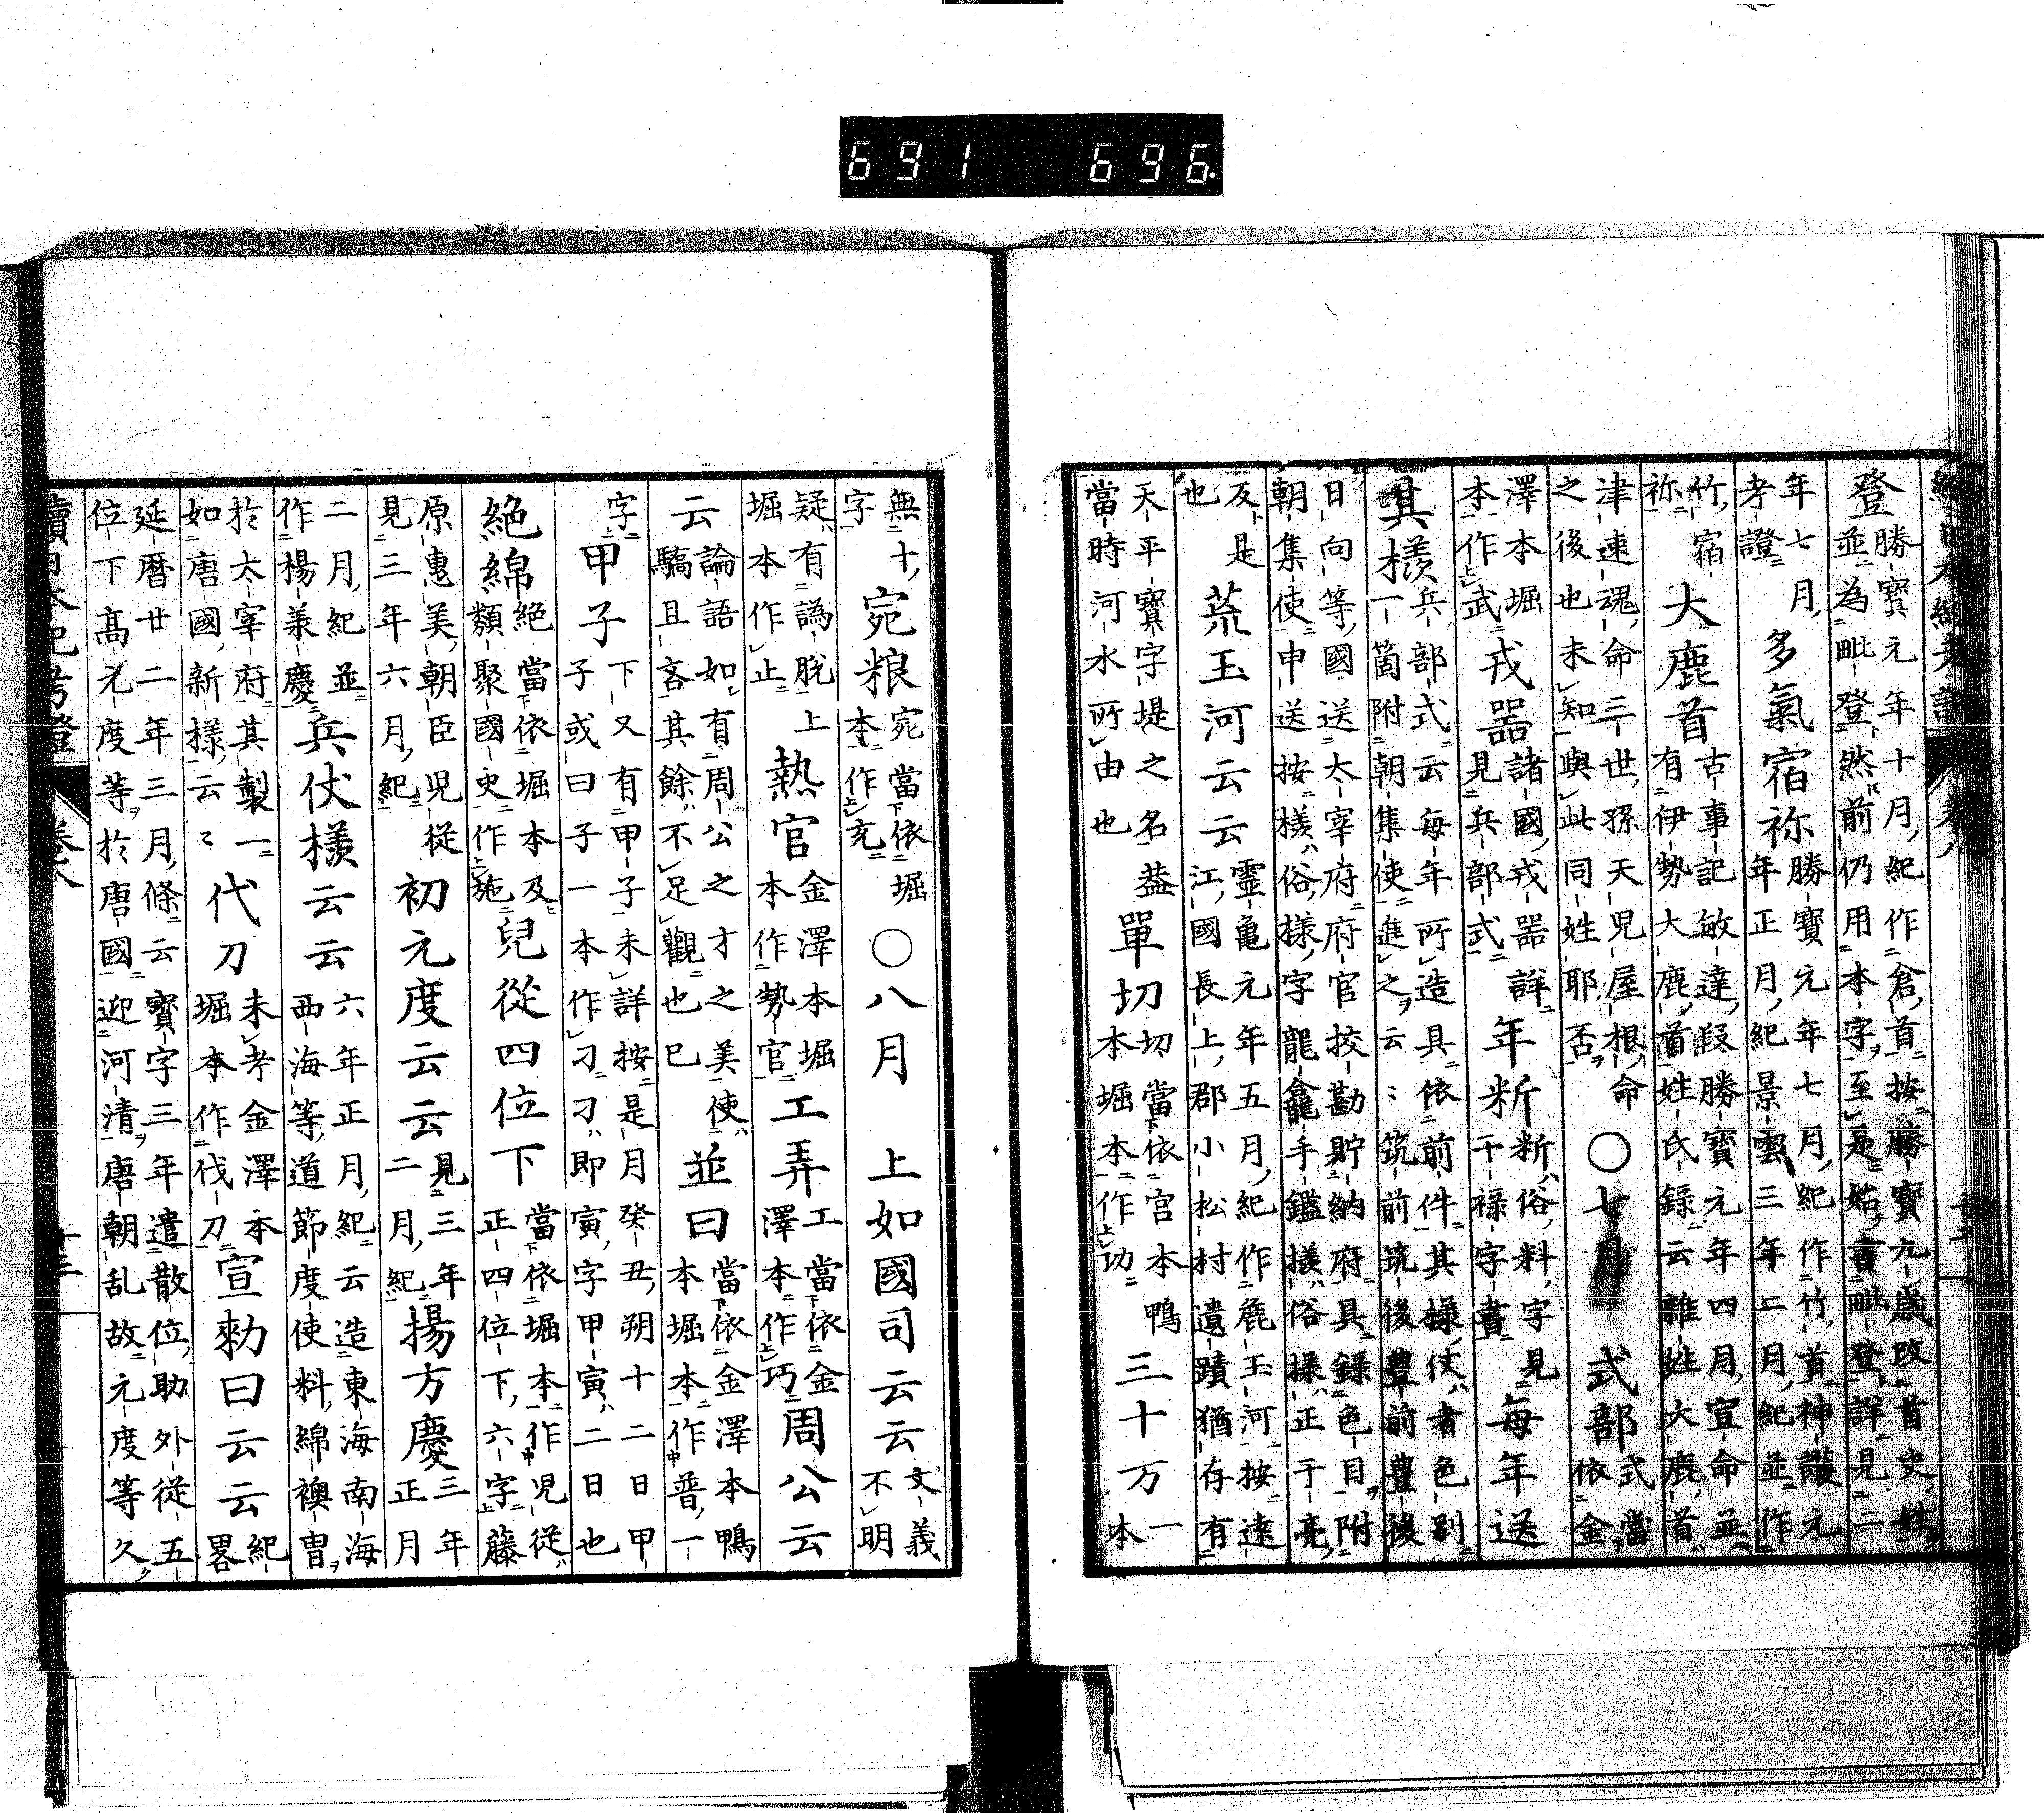 續日本紀考證 卷八
登
勝寶元年十月紀作倉首按勝寶九歳改首史姓
並為毗登然前仍用本字至是始書毗登詳見二
年七月
考證
多氣宿祢
勝寶元年七月紀作竹首神護元
年正月紀景雲三年二月紀並作
竹宿
祢
大鹿首
古事記敏達段勝寶元年四月宣命並
有伊勢大鹿首姓氏録云雜姓大鹿首
津速魂命三世孫天兒屋根命
之後也未知與此同姓耶否
○七月
式部
式當
依金
澤本堀
本作武
戎噐
諸國戎噐詳
見兵部式
年斫
斫俗料字見
干禄字書
毎年送
其樣
兵部式云毎年所造具依前件其樣仗者色別
一箇附朝集使進之云〻筑前筑後豊前豊後
日向等國送太宰府府官挍勘貯納府具録色目附
朝集使申送按樣俗樣字龍龕手鑑樣俗樣正于亮
反是
也
荒玉河云云
靈亀元年五月紀作麁玉河按遠
江國長上郡小松村遺蹟猶存有
天平寶字堤之名葢
當時河水所由也
單切
切當依宮本鴨
本堀本作功
三十万
一
本
無十
字
宛粮
宛當依堀
本作充
○八月
上如國司云云
文義
不明
疑有譌脱上
堀本作止
熱官
金澤本堀
本作勢官
工弄
工當依金
澤本作巧
周公云
云
論語如有周公之才之美使
驕且吝其餘不足觀也已
並曰
當依金澤本鴨
本堀本作普一
字
甲子
下又有甲子未詳按是月癸丑朔十二日甲
子或曰子一本作刁刁即寅字甲寅二日也
絶綿
絶當依堀本及
類聚國史作絁
兒從四位下
當依堀本作兒從
正四位下六字藤
原惠美朝臣兒從
見三年六月紀
初元度云云
見三年
二月紀
揚方慶
三年
正月
二月紀並
作楊羕慶
兵仗樣云云
六年正月紀云造東海南海
西海等道節度使料綿襖冑
於太宰府其製一
如唐國新樣云〻
代刀
未考金澤本
堀本作伐刀
宣勅曰云云
紀
畧
延暦廿二年三月條云寶字三年遣散位助外從五
位下高元度等於唐國迎河清唐朝乱故元度等久
續日本紀考證 卷八 十三